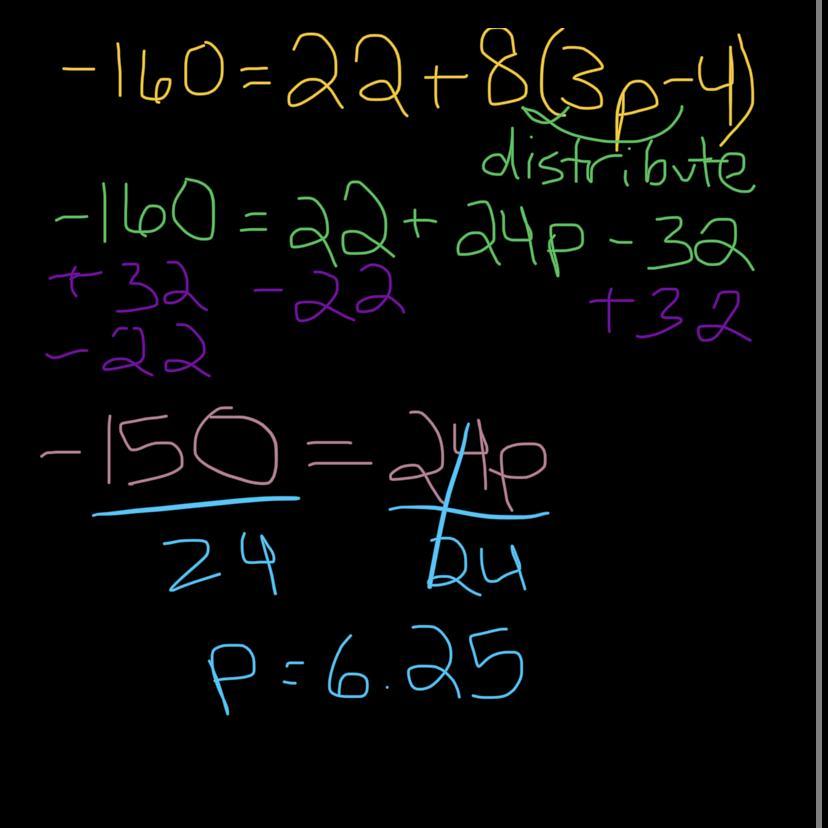 -160 = 22 + 8(3p - 4)
distribute
-160 = 22 + 24p - 32
+ 32 - 22 + 32
- 22
-150 = 24p
24 24
p = 6.25